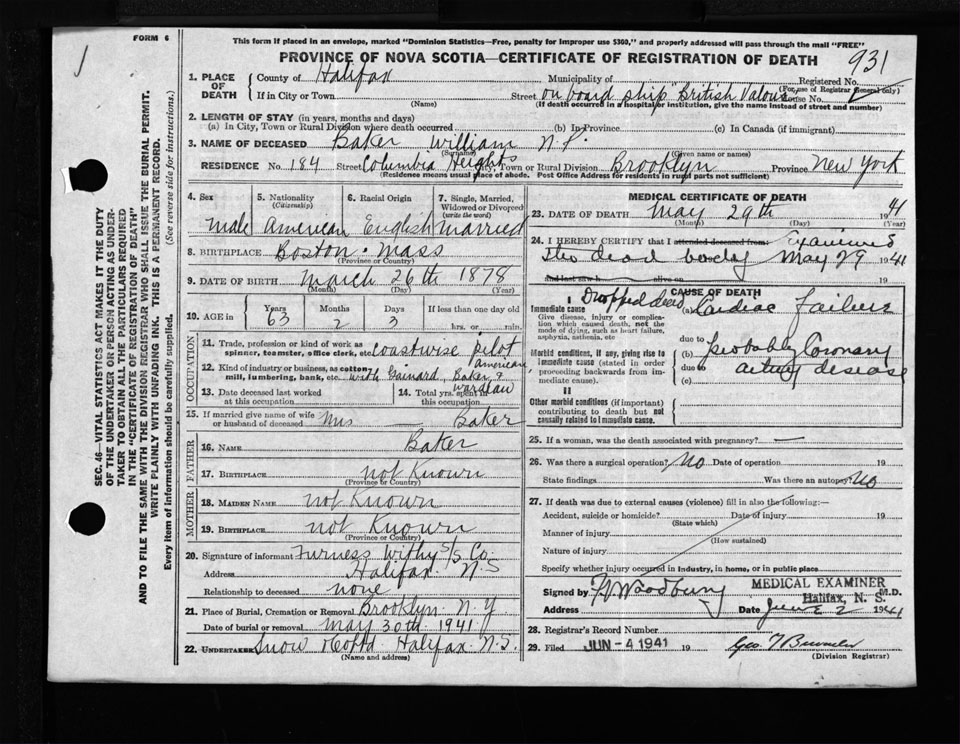 FORM 6
This form if placed in an envelope, marked "Dominion Statistics—Free, penalty for improper use $300," and properly addressed will pass through the mail "FREE"
PROVINCE OF NOVA SCOTIA—CERTIFICATE OF REGISTRATION OF DEATH
931
SEC. 46—VITAL STATISTICS ACT MAKES IT THE DUTY
OF THE UNDERTAKER OR PERSON ACTING AS UNDER-
TAKER TO OBTAIN ALL THE PARTICULARS REQUIRED
IN THE "CERTIFICATE OF REGISTRATION OF DEATH"
AND TO FILE THE SAME WITH THE DIVISION REGISTRAR WHO SHALL ISSUE THE BURIAL PERMIT.
WRITE PLAINLY WITH UNFADING INK. THIS IS A PERMANENT RECORD.
Every item of information should be carefully supplied. (See reverse side for instructions.)
1. PLACE OF DEATH
County of Halifax Municipality of Registered No.
(For use of Registrar General only)
If in City or Town Street on board ship British Valour House No.
(Name) (If death occurred in a hospital or institution, give the name instead of street and number)
2. LENGTH OF STAY (in years, months and days)
(a) In City, Town or Rural Division where death occurred (b) In Province (c) In Canada (if immigrant)
3. NAME OF DECEASED Baker William N. P.
(Surname) (Given name or names)
RESIDENCE No. 184 Street Columbia Heights City, Town or Rural Division Brooklyn Province New York
(Residence means usual place of abode. Post Office Address for residents in rural parts not sufficient)
4. Sex 5. Nationality (Citizenship) 6. Racial Origin 7. Single, Married, Widowed or Divorced (write the word)
Male American English Married
8. BIRTHPLACE Boston Mass
(Province or Country)
9. DATE OF BIRTH March 26th 1878
(Month) (Day) (Year)
10. AGE in Years Months Days If less than one day old
63 2 3 hrs. or min.
OCCUPATION
11. Trade, profession or kind of work as
spinner, teamster, office clerk, etc. coastwise pilot
12. Kind of industry or business, as cotton American
mill, lumbering, bank, etc. with Gainard, Baker &
Wardlaw
13. Date deceased last worked at this occupation
14. Total yrs. spent in this occupation
15. If married give name of wife or husband of deceased Mrs — Baker
FATHER
16. NAME Baker
17. BIRTHPLACE not Known
(Province or Country)
MOTHER
18. MAIDEN NAME not Known
19. BIRTHPLACE not Known
(Province or Country)
20. Signature of informant Furness Withy S/S Co.
Address Halifax N S
Relationship to deceased none
21. Place of Burial, Cremation or Removal Brooklyn N. Y.
Date of burial or removal May 30th 1941
22. UNDERTAKER Snow & Co Ltd Halifax N. S.
(Name and address)
MEDICAL CERTIFICATE OF DEATH
23. DATE OF DEATH May 29th 1941
(Month) (Day) (Year)
24. I HEREBY CERTIFY that I attended deceased from: Examined
the dead body May 29 1941
and last saw h alive on
CAUSE OF DEATH
I Dropped dead
Immediate cause (a) Cardiac failure
Give disease, injury or complication which caused death, not the mode of dying, such as heart failure, asphyxia, asthenia, etc
due to
Morbid conditions, if any, giving rise to immediate cause (stated in order proceeding backwards from immediate cause).
(b) probably Coronary
due to artery disease
(c)
II
Other morbid conditions (if important) contributing to death but not causally related to immediate cause.
25. If a woman, was the death associated with pregnancy? —
26. Was there a surgical operation? No Date of operation 19
State findings Was there an autopsy? No
27. If death was due to external causes (violence) fill in also the following:—
Accident, suicide or homicide? Date of injury 19
(State which)
Manner of injury
(How sustained)
Nature of injury
Specify whether injury occurred in industry, in home, or in public place
Signed by Woodbury M.D.
MEDICAL EXAMINER
Halifax, N. S.
Address Date June 2 1941
28. Registrar's Record Number
29. Filed JUN - 4 1941 19
(Division Registrar)